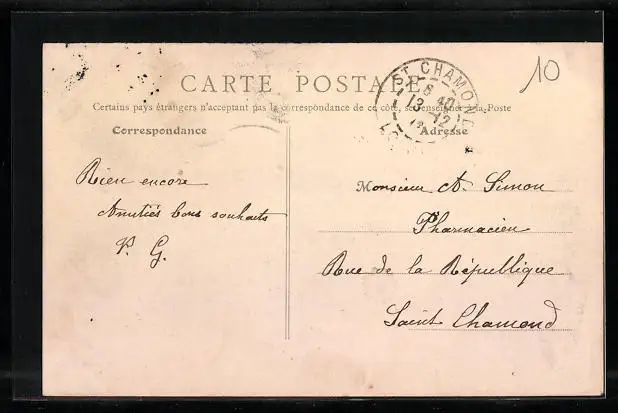 10
CARTE POSTALE
ST CHAMOND
13-12
Certains pays étrangers n'acceptant pas la correspondance de ce côté, se renseigner à la Poste
Correspondance
Adresse
Rien encore
Amitiés bons souhaits
V. G.
Monsieur A. Simon
Pharmacien
Rue de la République
Saint Chamond